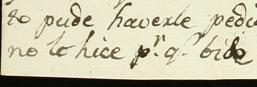 to pude haverle pedi
no lo hice pr. qe.